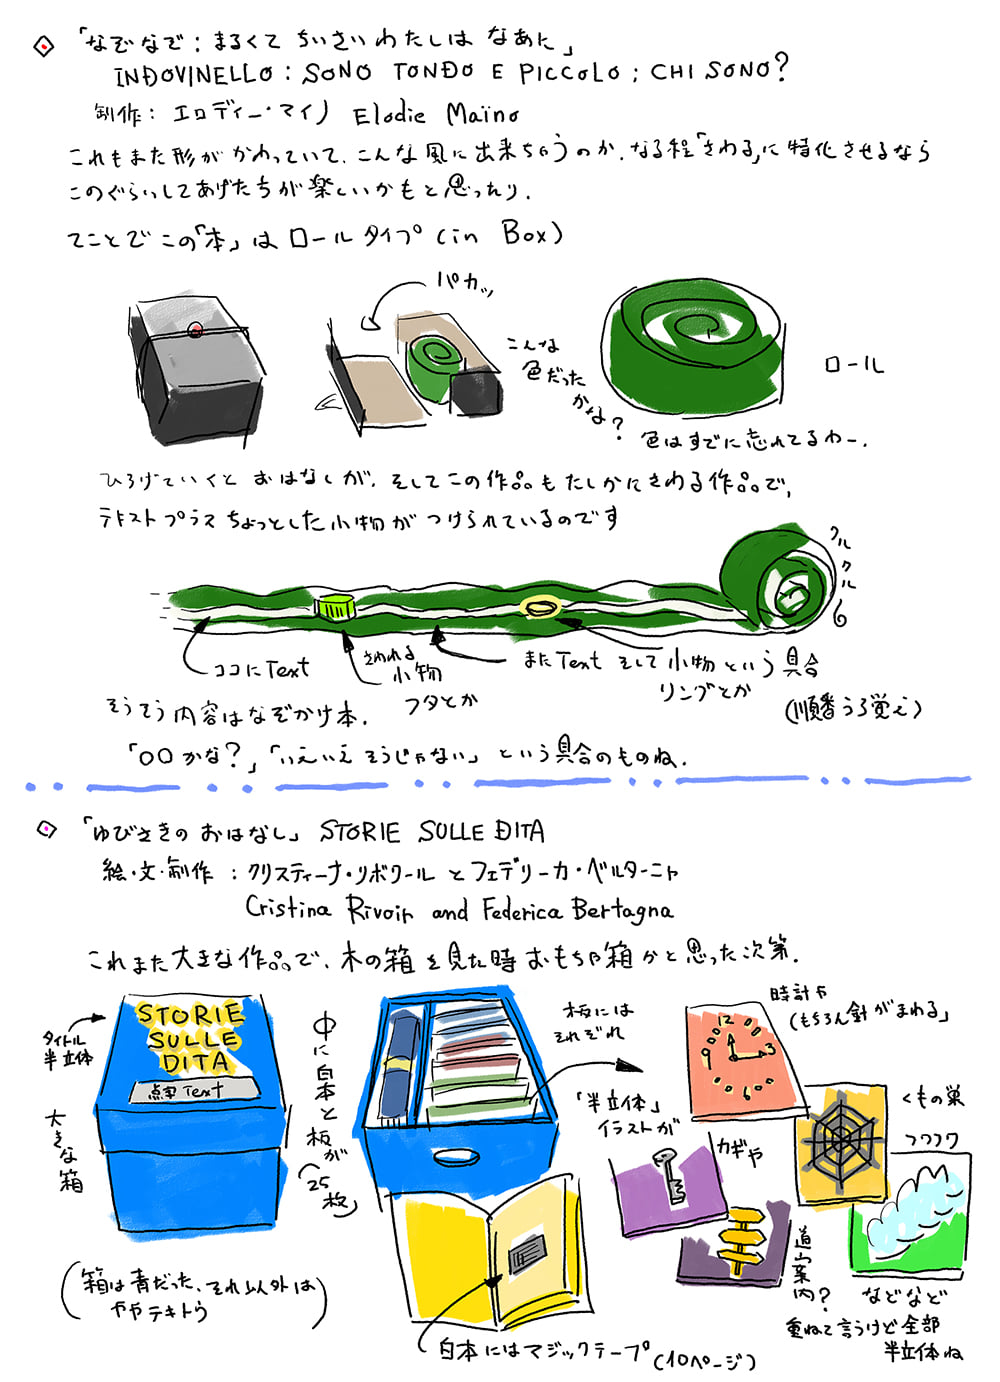 「なぞなぞ：まるくて ちいさい わたしは なあに」
INDOVINELLO : SONO TONDO E PICCOLO ; CHI SONO?
制作：エロディー・マイノ Elodie Maïno
これもまた形がかわっていて、こんな風に出来ちゃうのか、なる程「さわる」に特化させるなら
このぐらいしてあげたちが楽しいかもと思ったり.
てことで この「本」は ロールタイプ (in Box)
パカッ
こんな
色だった
かな？
ロール
色はすでに忘れてるわー.
ひろげていくと おはなしが. そしてこの作品も たしかにさわる作品で,
テキストプラス ちょっとした小物が つけられているのです
クルクル
ココにText
さわれる
小物
フタとか
またText そして小物という具合
リングとか
(順番うろ覚え)
そうそう 内容はなぞかけ本.
「○○かな？」「いえいえ そうじゃない」という具合のものね.
「ゆびさきの おはなし」 STORIE SULLE DITA
絵・文・制作：クリスティーナ・リボワール と フェデリーカ・ベルターニャ
Cristina Rivoir and Federica Bertagna
これまた 大きな作品で、木の箱を見た時 おもちゃ箱かと思った次第.
タイトル
半立体
STORIE
SULLE
DITA
点字 Text
大きな箱
中に白本と
板が
(25枚)
板には
それぞれ
「半立体」
イラストが
時計や
(もちろん針がまわる)
12
3
6
9
くもの巣
フワフワ
カギや
道案内？
などなど
重ねて言うけど全部
半立体ね
(箱は青だった、それ以外は
ややテキトウ)
白本にはマジックテープ (10ページ)